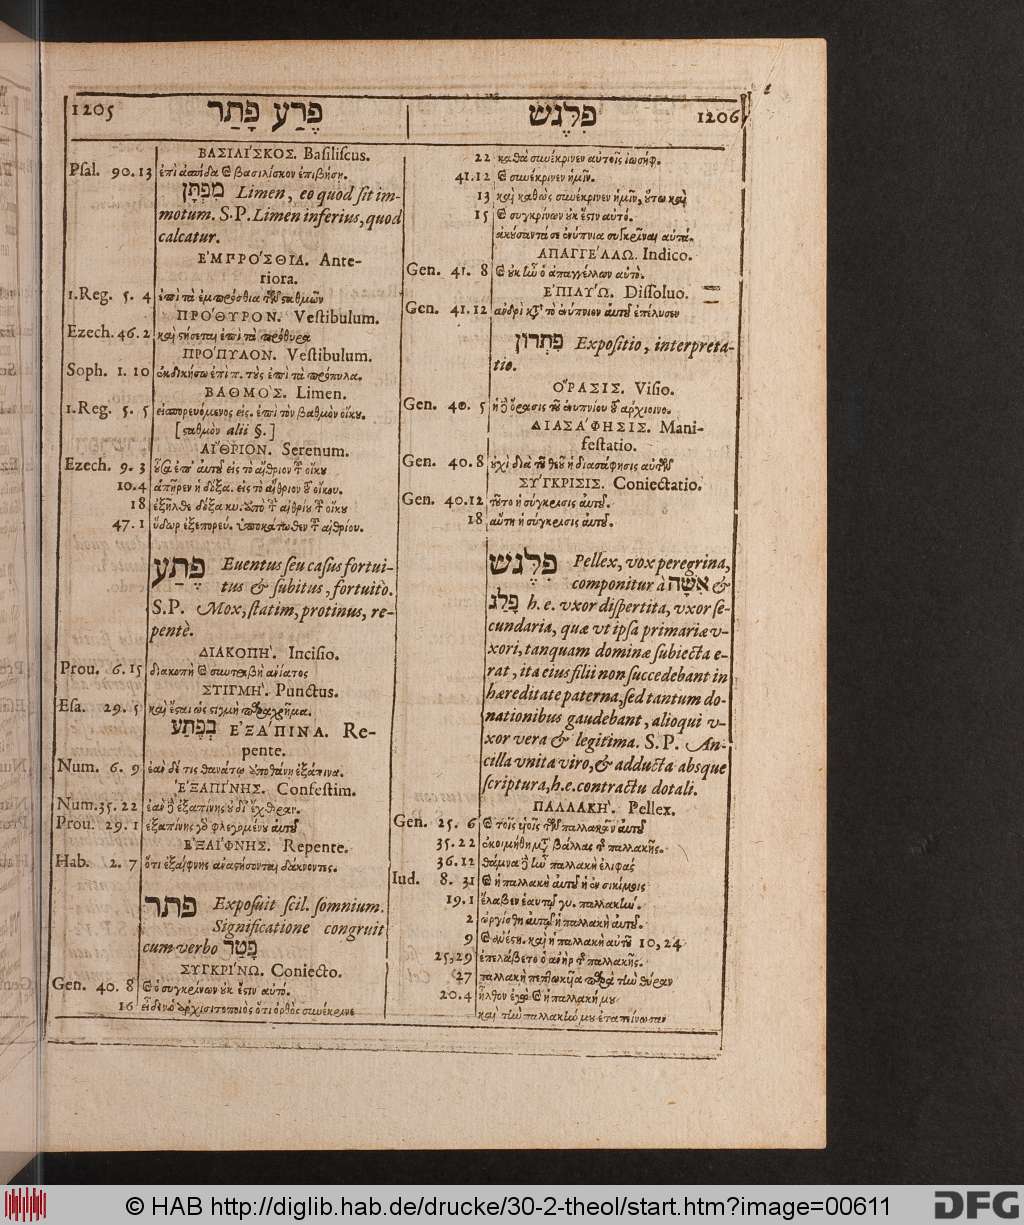 1205 פֶּרַע פָּתַר
ΒΑΣΙΛΙΣΚΟΣ. Basiliscus.
Psal. 90.13 ἐπὶ ἀσπίδα καὶ βασιλίσκον ἐπιβήσῃ.
מִפְתָּן Limen, eo quod sit im-
motum. S.P. Limen inferius, quod
calcatur.
ΕΜΠΡΟΣΘΙΑ. Ante-
riora.
1.Reg. 5. 4 ἐπὶ τὰ ἐμπρόσθια τῶν σταθμῶν
ΠΡΟΘΥΡΟΝ. Vestibulum.
Ezech. 46.2 καὶ στήσεται ἐπὶ τὰ πρόθυρα
ΠΡΟΠΥΛΟΝ. Vestibulum.
Soph. 1. 10 ἐκδικήσω ἐπὶ π. τοὺς ἐπὶ τὰ πρόπυλα.
ΒΑΘΜΟΣ. Limen.
1.Reg. 5. 5 εἰσπορευόμενος εἰς. ἐπὶ τὸν βαθμὸν οἴκου.
[σταθμὸν alii §.]
ΑΙΘΡΙΟΝ. Serenum.
Ezech. 9. 3 οὖσα ἐπ' αὐτοῦ εἰς τὸ αἴθριον τοῦ οἴκου
10.4 ἀπῆρεν ἡ δόξα. εἰς τὸ αἴθριον τοῦ οἴκου.
18 ἐξῆλθε δόξα κυ. ὑπὸ τοῦ αἰθρίου τοῦ οἴκου
47.1 ὕδωρ ἐξεπορεύ. ὑποκάτωθεν τοῦ αἰθρίου.
פֶּתַע Euentus seu casus fortui-
tus & subitus, fortuitò.
S.P. Mox, statim, protinus, re-
pentè.
ΔΙΑΚΟΠΗ. Incisio.
Prou. 6.15 διακοπὴ καὶ συντριβὴ ἀνίατος
ΣΤΙΓΜΗ. Punctus.
Esa. 29. 5 καὶ ἔσται ὡς στιγμὴ παραχρῆμα.
בְּפֶתַע ΕΞΑΠΙΝΑ. Re-
pente.
Num. 6. 9 ἐὰν δέ τις θανάτῳ ὑποθάνῃ ἐξάπινα.
ΕΞΑΠΙΝΗΣ. Confestim.
Num. 35. 22 ἐὰν δὲ ἐξαπίνης οὐ δι' ἔχθραν.
Prou. 29. 1 ἐξαπίνης γὰρ φλεγομένου αὐτοῦ
ΕΞΑΙΦΝΗΣ. Repente.
Hab. 2. 7 ὅτι ἐξαίφνης ἀναστήσονται δάκνοντες.
פתר Exposuit scil. somnium.
Significatione congruit
cum verbo פָּטַר
ΣΥΓΚΡΙΝΩ. Coniecto.
Gen. 40. 8 καὶ ὁ συγκρίνων οὐκ ἔστιν αὐτό.
16 εἶδεν ὁ ἀρχισιτοποιὸς ὅτι ὀρθῶς συνέκρινε
פִּלֶגֶשׁ 1206
22 καθὰ συνέκρινεν αὐτοῖς ἰωσήφ.
41.12 καὶ συνέκρινεν ἡμῖν.
13 καὶ καθὼς συνέκρινεν ἡμῖν, οὕτω καὶ
15 καὶ συγκρίνων οὐκ ἔστιν αὐτό.
ἀκούσαντά σε ἐνύπνια συγκρῖναι αὐτά.
ΑΠΑΓΓΕΛΛΩ. Indico.
Gen. 41. 8 καὶ οὐκ ἦν ὁ ἀπαγγέλλων αὐτὸ.
ΕΠΙΛΥΩ. Dissoluo.
Gen. 41.12 ἀνδρὶ κατὰ τὸ ἐνύπνιον αὐτοῦ ἐπέλυσεν
פִּתְרוֹן Expositio, interpreta-
tio.
ΟΡΑΣΙΣ. Visio.
Gen. 40. 5 ἡ δὲ ὅρασις τοῦ ἐνυπνίου τοῦ ἀρχιοινο.
ΔΙΑΣΑΦΗΣΙΣ. Mani-
festatio.
Gen. 40.8 οὐχὶ διὰ τοῦ θεοῦ ἡ διασάφησις αὐτῶν
ΣΥΓΚΡΙΣΙΣ. Coniectatio.
Gen. 40.12 τοῦτο ἡ σύγκρισις αὐτοῦ.
18 αὕτη ἡ σύγκρισις αὐτοῦ.
פִּלֶגֶשׁ Pellex, vox peregrina,
componitur à אִשָּׁה &
פָּלַג h. e. vxor dispertita, vxor se-
cundaria, quæ vt ipsa primariæ v-
xori, tanquam dominæ subiecta e-
rat, ita eius filii non succedebant in
hæreditate paterna, sed tantum do-
nationibus gaudebant, alioqui v-
xor vera & legitima. S.P. An-
cilla vnita viro, & adducta absque
scriptura, h.e. contractu dotali.
ΠΑΛΛΑΚΗ. Pellex.
Gen. 25. 6 καὶ τοῖς υἱοῖς τῶν παλλακῶν αὐτοῦ
35.22 ἐκοιμήθη μετὰ βάλλας τῆς παλλακῆς.
36.12 θάμνα δὲ ἦν παλλακὴ ἐλιφάς
Iud. 8. 31 καὶ ἡ παλλακὴ αὐτοῦ ἡ ἐν σικίμοις
19.1 ἔλαβεν ἑαυτῷ γυ. παλλακήν.
2 ὠργίσθη αὐτῷ ἡ παλλακὴ αὐτοῦ.
9 καὶ ἀνέστη. καὶ ἡ παλλακὴ αὐτοῦ 10, 24
25, 29 ἐπελάβετο ὁ ἀνὴρ τῆς παλλακῆς.
27 παλλακὴ πεπτωκυῖα παρὰ τὴν θύραν
20.4 ἦλθον ἐγὼ καὶ ἡ παλλακή μου
καὶ τὴν παλλακήν μου ἐταπείνωσαν
© HAB http://diglib.hab.de/drucke/30-2-theol/start.htm?image=00611
DFG